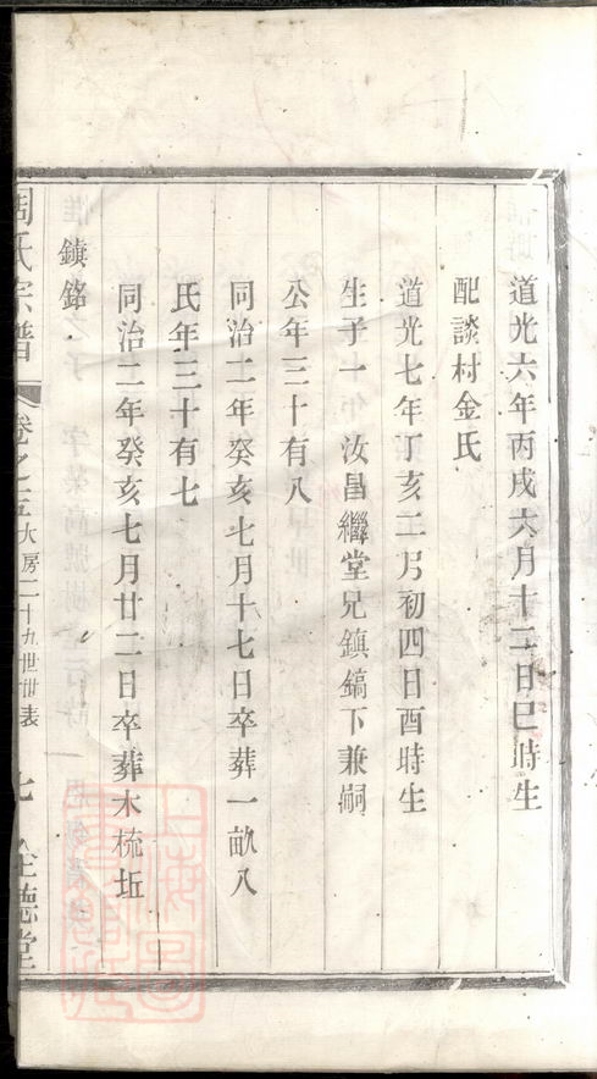 道光六年丙戌六月十二日巳時生
配談村金氏
道光七年丁亥二月初四日酉時生
生子一 汝昌繼堂兄鎮鎬下兼嗣
公年三十有八
同治二年癸亥七月十七日卒葬一畝八
氏年三十有七
同治二年癸亥七月廿二日卒葬木梳坵
鎮銘
周氏宗譜 卷之五 大房二十九世世表 七 全德堂